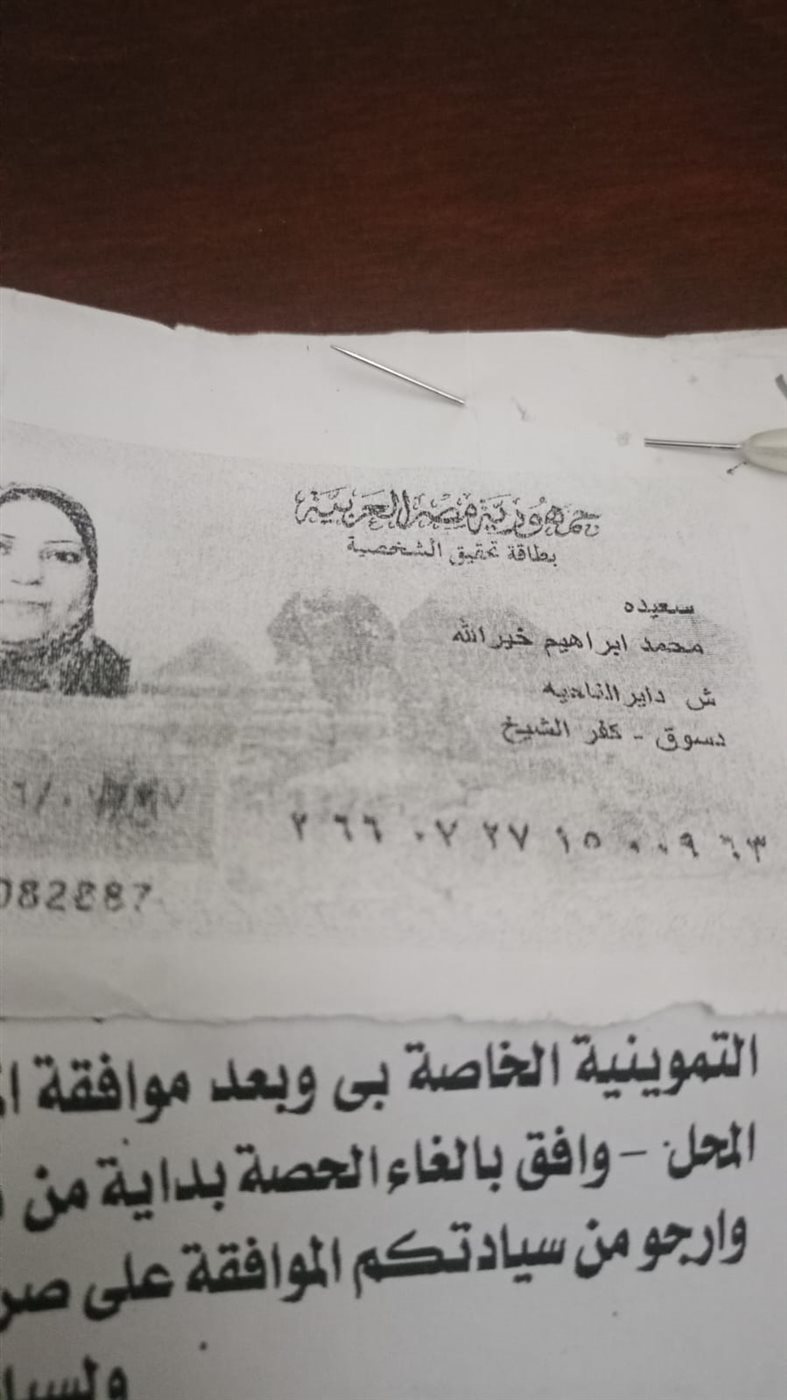 جمهورية مصر العربية
بطاقة تحقيق الشخصية
سعيده
محمد ابراهيم خيرالله
ش داير الناحيه
دسوق - كفر الشيخ
٢ ٦٦ ٠٧ ٢٧ ١٥ ٠٠٩ ٦٣
082887
التموينية الخاصة بى وبعد موافقة
المحل - وافق بالغاء الحصة بداية من
وارجو من سيادتكم الموافقة على